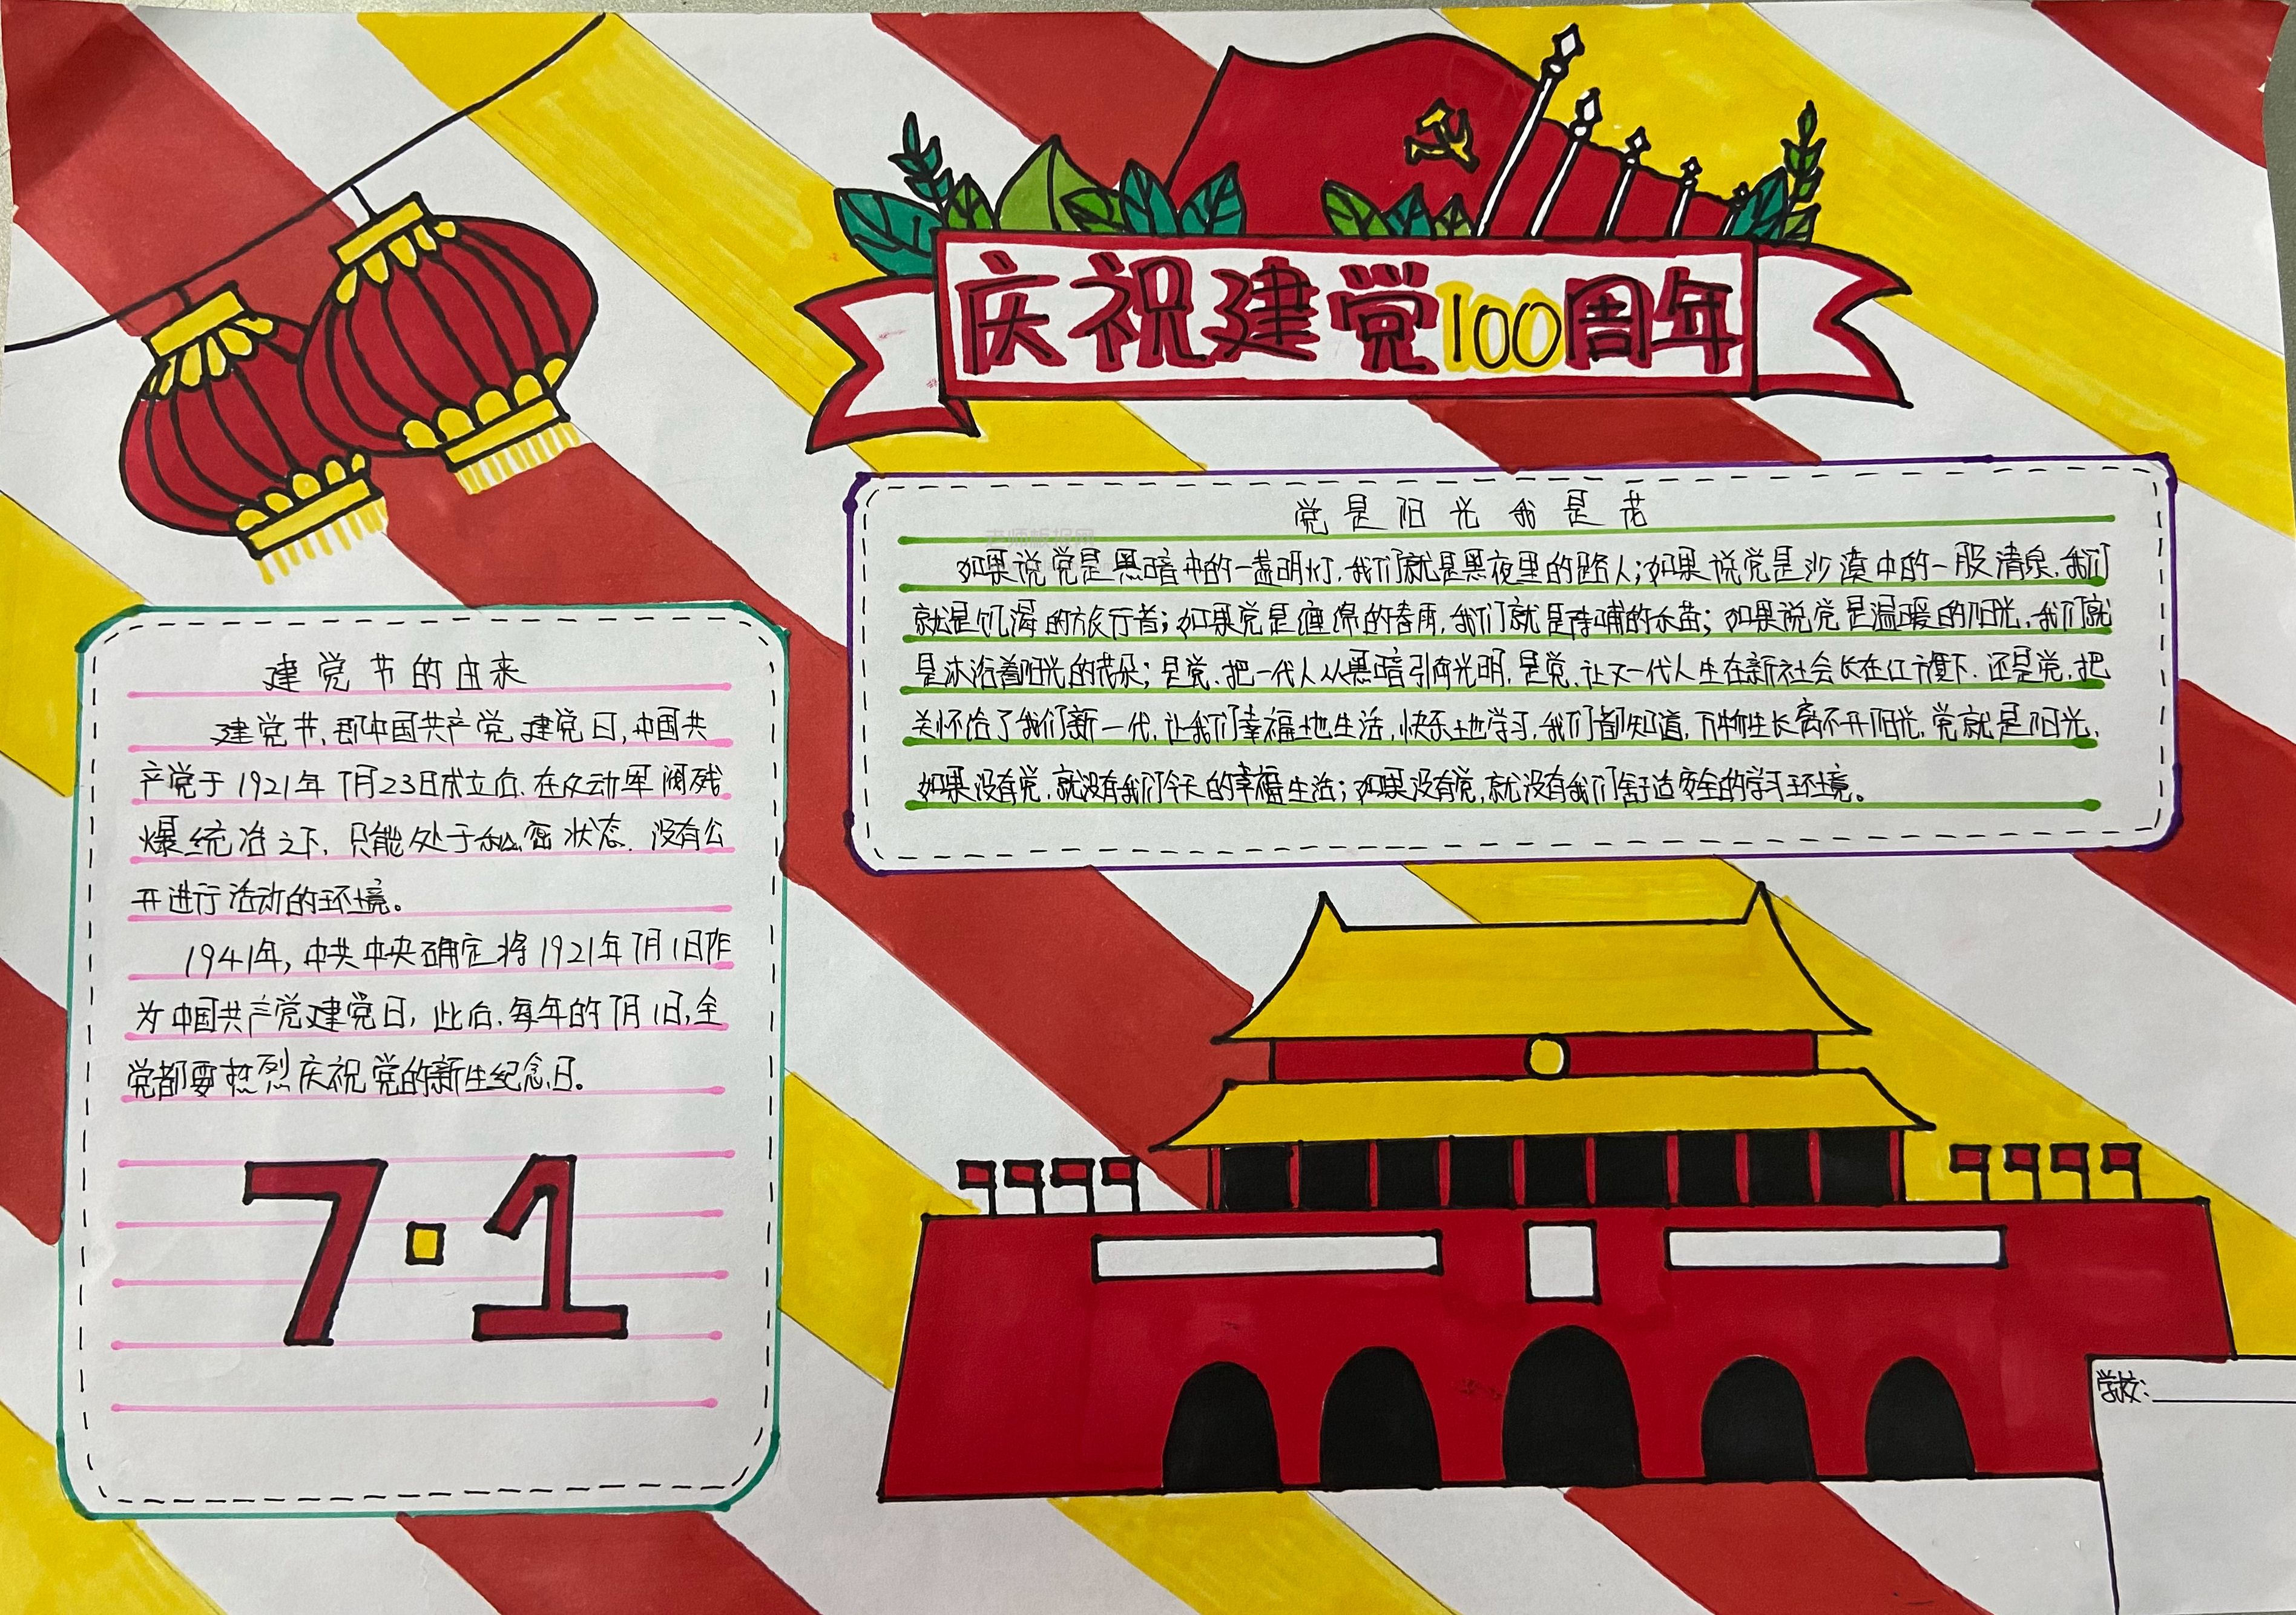 庆祝建党100周年
党是阳光我是花
如果说党是黑暗中的一盏明灯,我们就是黑夜里的路人;如果说党是沙漠中的一股清泉,我们
就是饥渴的旅行者;如果党是缠绵的春雨,我们就是待哺的禾苗;如果说党是温暖的阳光,我们就
是沐浴着阳光的花朵;是党,把一代人从黑暗引向光明,是党,让又一代人生在新社会长在红旗下.还是党,把
关怀给了我们新一代,让我们幸福地生活,快乐地学习,我们都知道,万物生长离不开阳光,党就是阳光,
如果没有党,就没有我们今天的幸福生活;如果没有党,就没有我们舒适安全的学习环境。
建党节的由来
建党节,即中国共产党建党日,中国共
产党于1921年7月23日成立后,在众动军阀残
爆统治之下,只能处于秘密状态.没有公
开进行活动的环境。
1941年,中共中央确定将1921年7月1日作
为中国共产党建党日,此后,每年的7月1日,全
党都要热烈庆祝党的新生纪念日。
7·1
学校: